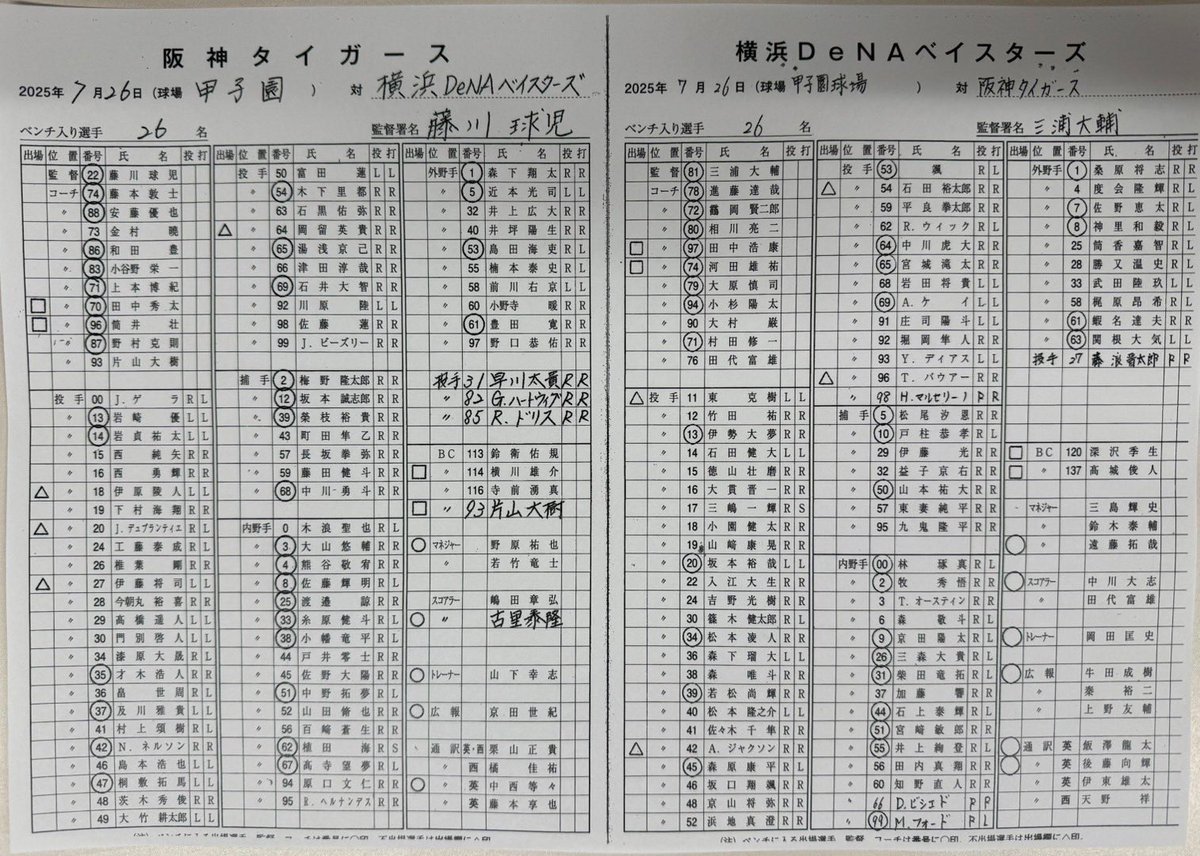 阪神タイガース
2025年 7月26日(球場 甲子園 ) 対 横浜DeNAベイスターズ
ベンチ入り選手 26 名 監督署名 藤川 球児
出場 位置 番号 氏名 投 打
監督 22 藤川球児
コーチ 74 藤本敦士
〃 88 安藤優也
〃 73 金村 曉
〃 86 和田 豊
〃 83 小谷野栄一
〃 71 上本博紀
□ 〃 70 田中秀太
□ 〃 96 筒井 壮
87 野村克則
93 片山大樹
投手 00 J.ゲラ R L
〃 13 岩崎 優 L L
〃 14 岩貞祐太 L L
〃 15 西 純矢 R R
〃 16 西 勇輝 R R
△ 〃 18 伊原陵人 L L
〃 19 下村海翔 R R
△ 〃 20 J.デュプランティエ R L
〃 24 工藤泰成 R L
〃 26 椎葉 剛 R R
△ 〃 27 伊藤将司 L L
〃 28 今朝丸裕喜 R R
〃 29 高橋遥人 L L
〃 30 門別啓人 L L
〃 34 漆原大晟 R L
〃 35 才木浩人 R R
〃 36 畠 世周 R L
〃 37 及川雅貴 L L
〃 41 村上頌樹 R L
〃 42 N.ネルソン R R
〃 46 島本浩也 L L
〃 47 桐敷拓馬 L L
〃 48 茨木秀俊 R R
〃 49 大竹耕太郎 L L
出場 位置 番号 氏名 投 打
投手 50 富田 蓮 L L
〃 54 木下里都 R L
〃 63 石黒佑弥 R R
△ 〃 64 岡留英貴 R R
〃 65 湯浅京己 R R
〃 66 津田淳哉 R R
〃 69 石井大智 R R
〃 92 川原 陸 L L
〃 98 佐藤 蓮 R R
〃 99 J.ビーズリー R R
捕手 2 梅野隆太郎 R R
〃 12 坂本誠志郎 R R
〃 39 榮枝裕貴 R R
〃 43 町田隼乙 R R
〃 57 長坂拳弥 R R
〃 59 藤田健斗 R R
〃 68 中川勇斗 R R
内野手 0 木浪聖也 R L
〃 3 大山悠輔 R R
〃 4 熊谷敬宥 R R
〃 8 佐藤輝明 R L
〃 25 渡邉 諒 R R
〃 33 糸原健斗 R L
〃 38 小幡竜平 R L
〃 44 戸井零士 R R
〃 45 佐野大陽 R R
〃 51 中野拓夢 R L
〃 52 山田脩也 R R
〃 56 百崎蒼生 R R
〃 62 植田 海 R S
〃 67 髙寺望夢 R L
〃 94 原口文仁 R R
〃 95 R.ヘルナンデス R R
出場 位置 番号 氏名 投 打
外野手 1 森下翔太 R R
〃 5 近本光司 L L
〃 32 井上広大 R R
〃 40 井坪陽生 R R
〃 53 島田海吏 R L
〃 55 楠本泰史 R L
〃 58 前川右京 L L
〃 60 小野寺 暖 R R
〃 61 豊田 寛 R R
〃 97 野口恭佑 R R
投手 31 早川太貴 R R
〃 82 G.ハートウィグ R L
〃 85 R.ドリス R R
BC 113 鈴衛佑規
□ 〃 114 横川雄介
〃 116 寺前湧真
□ 〃 93 片山大樹
○ マネジャー 野原祐也
〃 若竹竜士
スコアラー 嶋田章弘
○ 〃 古里泰隆
○ トレーナー 山下幸志
○ 広報 京田世紀
通訳 英・西 栗山正貴
〃 西 橘 佳祐
○ 〃 英 中西等々
〃 英 藤本享也
横浜DeNAベイスターズ
2025年 7月26日(球場 甲子園球場 ) 対 阪神タイガース
ベンチ入り選手 26 名 監督署名 三浦大輔
出場 位置 番号 氏名 投 打
監督 81 三浦大輔
コーチ 78 進藤達哉
〃 72 鶴岡賢二郎
〃 80 相川亮二
□ 〃 97 田中浩康
□ 〃 74 河田雄祐
〃 79 大原慎司
〃 94 小杉陽太
〃 90 大村 巌
〃 71 村田修一
〃 76 田代富雄
△ 投手 11 東 克樹 L L
〃 12 竹田 祐 R R
〃 13 伊勢大夢 R R
〃 14 石田健大 L L
〃 15 徳山壮磨 R R
〃 16 大貫晋一 R R
〃 17 三嶋一輝 R S
〃 18 小園健太 R R
〃 19 山﨑康晃 R R
〃 20 坂本裕哉 L L
〃 22 入江大生 R R
〃 24 吉野光樹 R R
〃 30 篠木健太郎 R L
〃 34 松本凌人 R R
〃 36 森下瑠大 L L
〃 38 森 唯斗 R R
〃 39 若松尚輝 R R
〃 40 松本隆之介 L L
〃 41 佐々木千隼 R R
△ 〃 42 A.ジャクソン R R
〃 45 森原康平 R L
〃 46 坂口翔颯 R R
〃 48 京山将弥 R R
〃 52 浜地真澄 R R
出場 位置 番号 氏名 投 打
投手 53 颯 R R
△ 〃 54 石田裕太郎 R R
〃 59 平良拳太郎 R R
〃 62 R.ウィック R L
〃 64 中川虎大 R R
〃 65 宮城滝太 R R
〃 68 岩田将貴 L L
〃 69 A.ケイ L L
〃 91 庄司陽斗 L L
〃 92 堀岡隼人 R R
〃 93 Y.ディアス L L
△ 〃 96 T.バウアー R R
〃 98 H.マルセリーノ R R
捕手 5 松尾汐恩 R R
〃 10 戸柱恭孝 R L
〃 29 伊藤 光 R R
〃 32 益子京右 R R
〃 50 山本祐大 R R
〃 57 東妻純平 R R
〃 95 九鬼隆平 R R
内野手 00 林 琢真 R L
〃 2 牧 秀悟 R R
〃 3 T.オースティン R R
〃 6 森 敬斗 R L
〃 9 京田陽太 R L
〃 26 三森大貴 R L
〃 31 柴田竜拓 R L
〃 37 加藤 響 R R
〃 44 石上泰輝 R L
〃 51 宮﨑敏郎 R R
〃 55 井上絢登 R L
〃 56 田内真翔 R L
〃 60 知野直人 R R
〃 66 D.ビシエド R R
〃 99 M.フォード R L
出場 位置 番号 氏名 投 打
外野手 1 桑原将志 R R
〃 4 度会隆輝 R L
〃 7 佐野恵太 R L
〃 8 神里和毅 R L
〃 25 筒香嘉智 R L
〃 28 勝又温史 R L
〃 33 武田陸玖 L L
〃 58 梶原昂希 R L
〃 61 蝦名達夫 R R
〃 63 関根大気 L L
投手 27 藤浪晋太郎 R R
□ BC 120 深沢季生
□ 〃 137 高城俊人
マネジャー 三島輝史
〃 鈴木泰輔
○ 〃 遠藤拓哉
○ スコアラー 中川大志
〃 田代富雄
○ トレーナー 岡田匡史
○ 広報 牛田成樹
〃 秦 裕二
〃 上野友輔
○ 通訳 英 飯澤龍太
○ 〃 英 後藤向輝
〃 英 伊東雄太
〃 西 天野 祥
(注) ベンチに入る出場選手、監督、コーチは番号に○印、不出場選手は出場欄に△印。